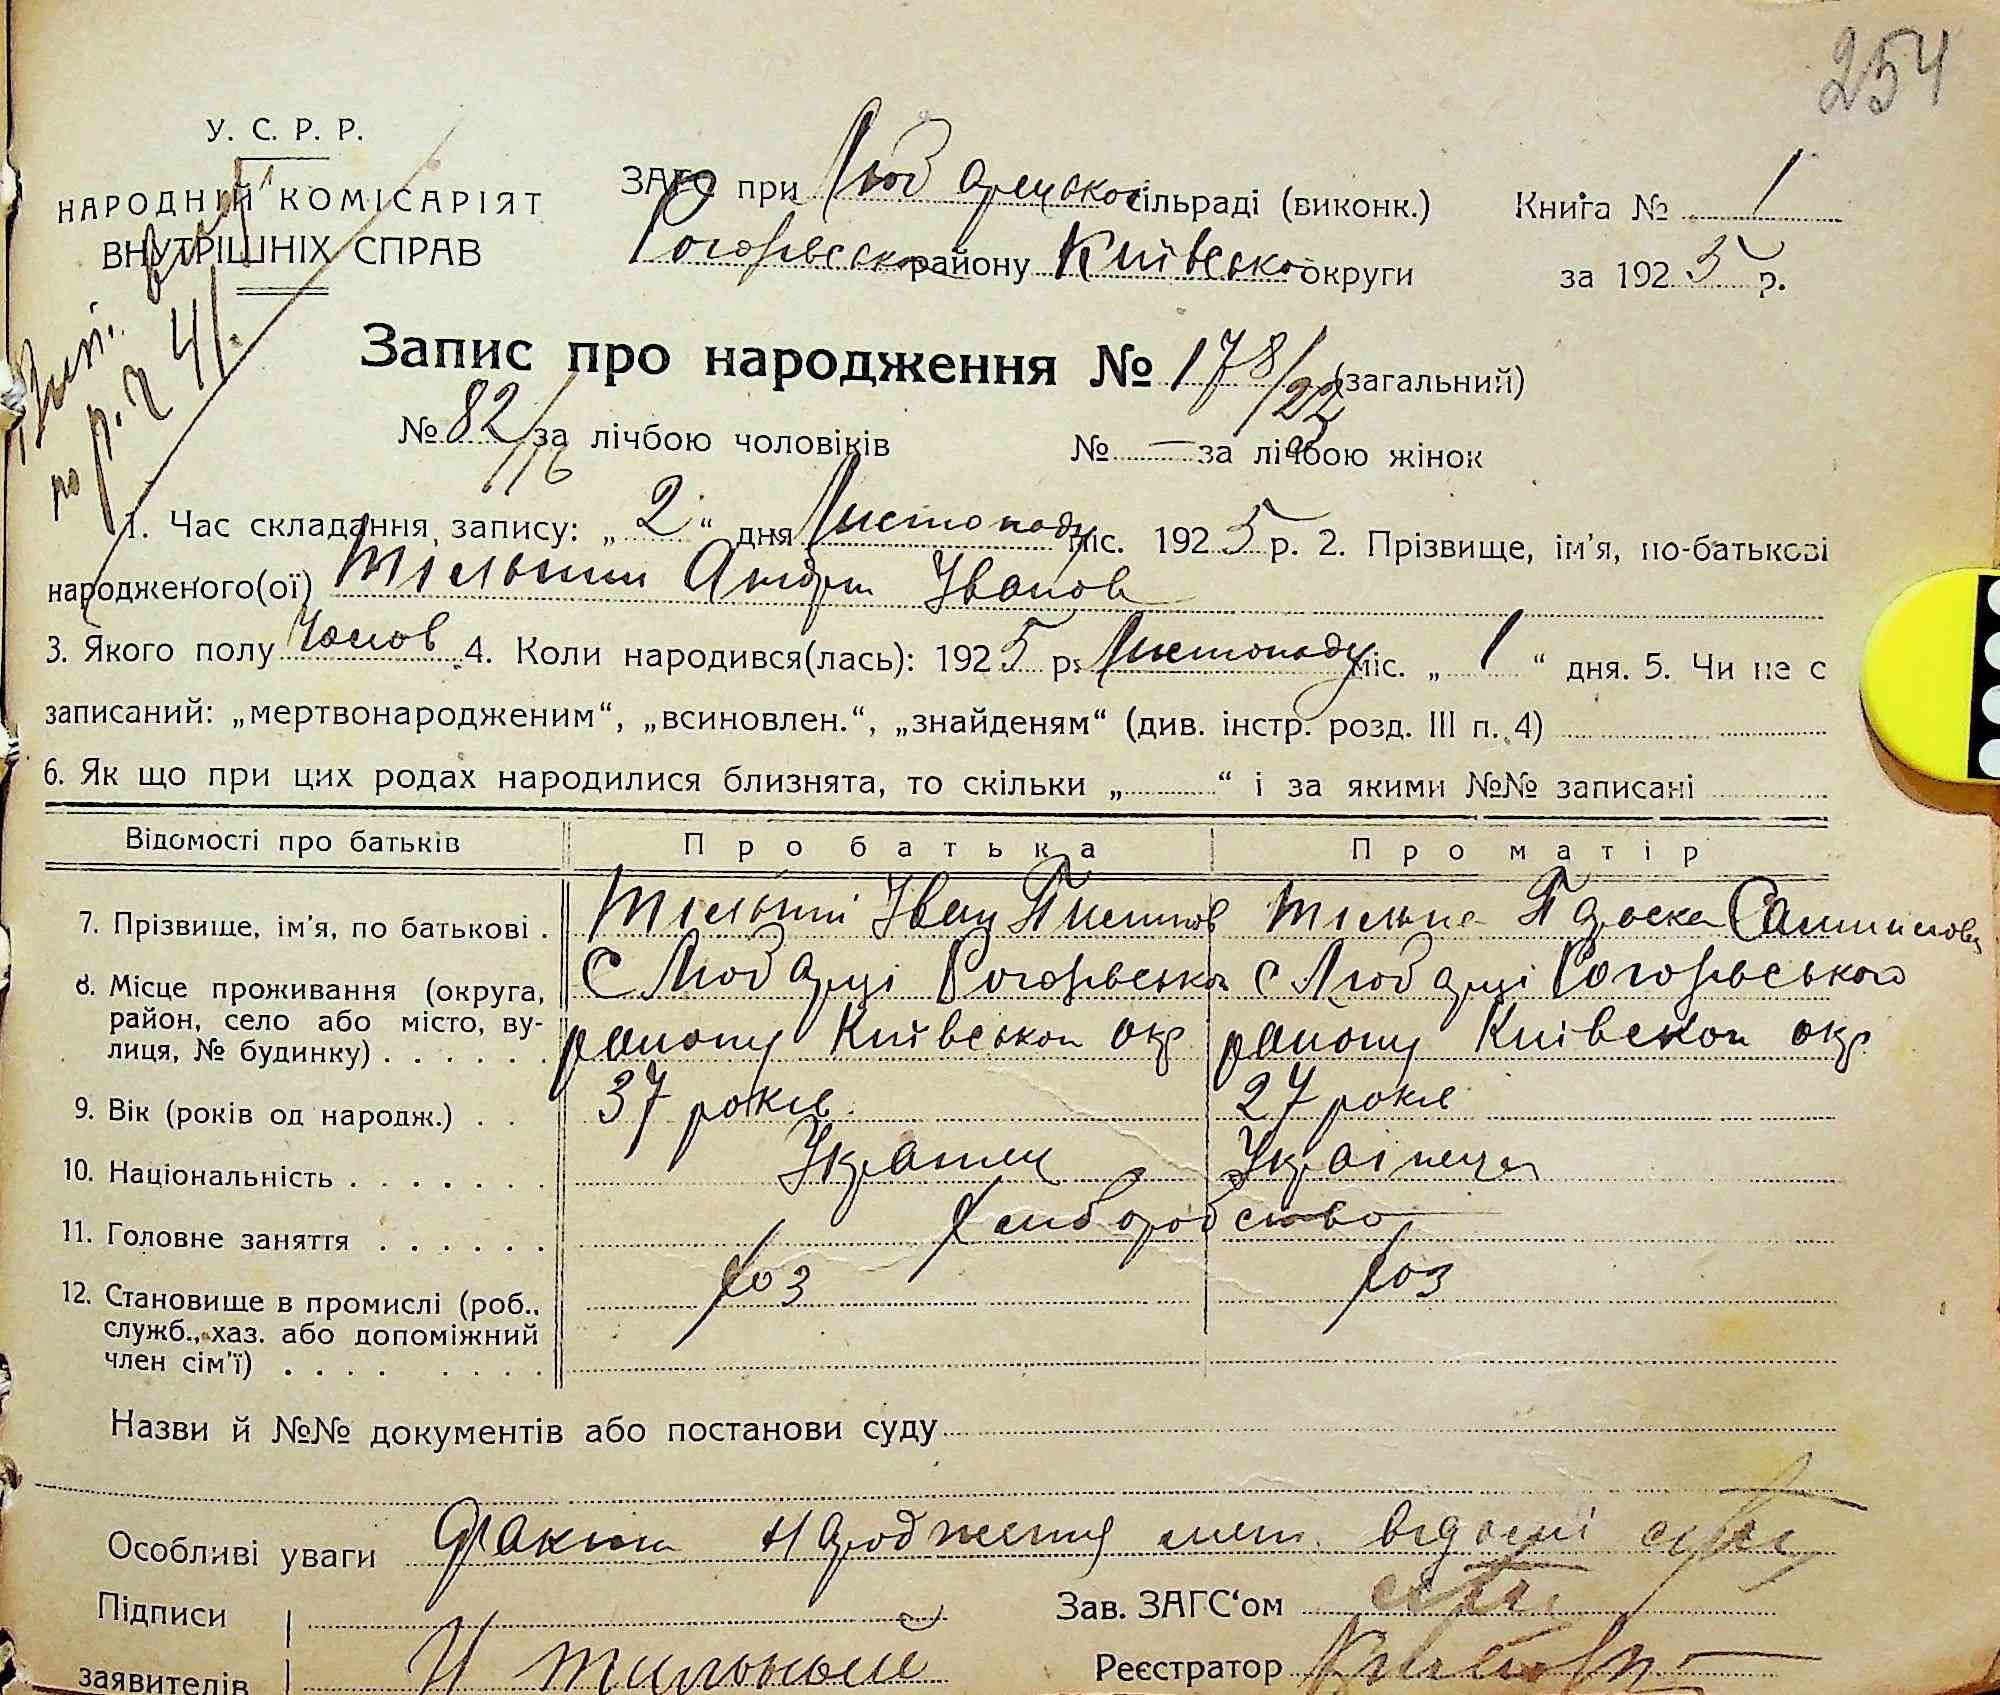 254
У. С. Р. Р.
НАРОДНІЙ КОМІСАРІЯТ
ВНУТРІШНІХ СПРАВ
ЗАГС при Любарецької сільраді (виконк.)
району Київської округи
Книга № 1
за 1925 р.
по р. 2 41.
Запис про народження № 178/22 (загальний)
№ 82/116 за лічбою чоловіків № — за лічбою жінок
1. Час складання запису: „2“ дня Листопаду міс. 1925 р. 2. Прізвище, ім'я, по-батькові
народженого(ої) Тільний Андрій Іванов
3. Якого полу Чолов 4. Коли народився(лась): 1925 р. Листопаду міс. „1“ дня. 5. Чи не є
записаний: „мертвонародженим“, „всиновлен.“, „знайденям“ (див. інстр. розд. III п. 4)
6. Як що при цих родах народилися близнята, то скільки „ “ і за якими №№ записані
Відомості про батьків Про батька Про матір
7. Прізвище, ім'я, по батькові . Тільний Іван Тільна
8. Місце проживання (округа, С Любарці С Любарці
район, село або місто, ву- району Київської окр району Київської окр
лиця, № будинку) . . . . . .
9. Вік (років од народж.) . . 37 років 27 років
10. Національність . . . . . . . Українец Українка
11. Головне заняття . . . . . . Хліборобство
12. Становище в промислі (роб., Хоз Хоз
служб., хаз. або допоміжний
член сім'ї) . . . . . . . .
Назви й №№ документів або постанови суду
Особливі уваги Факт народження
Підписи
Зав. ЗАГС'ом
заявителів И Тильный
Реєстратор